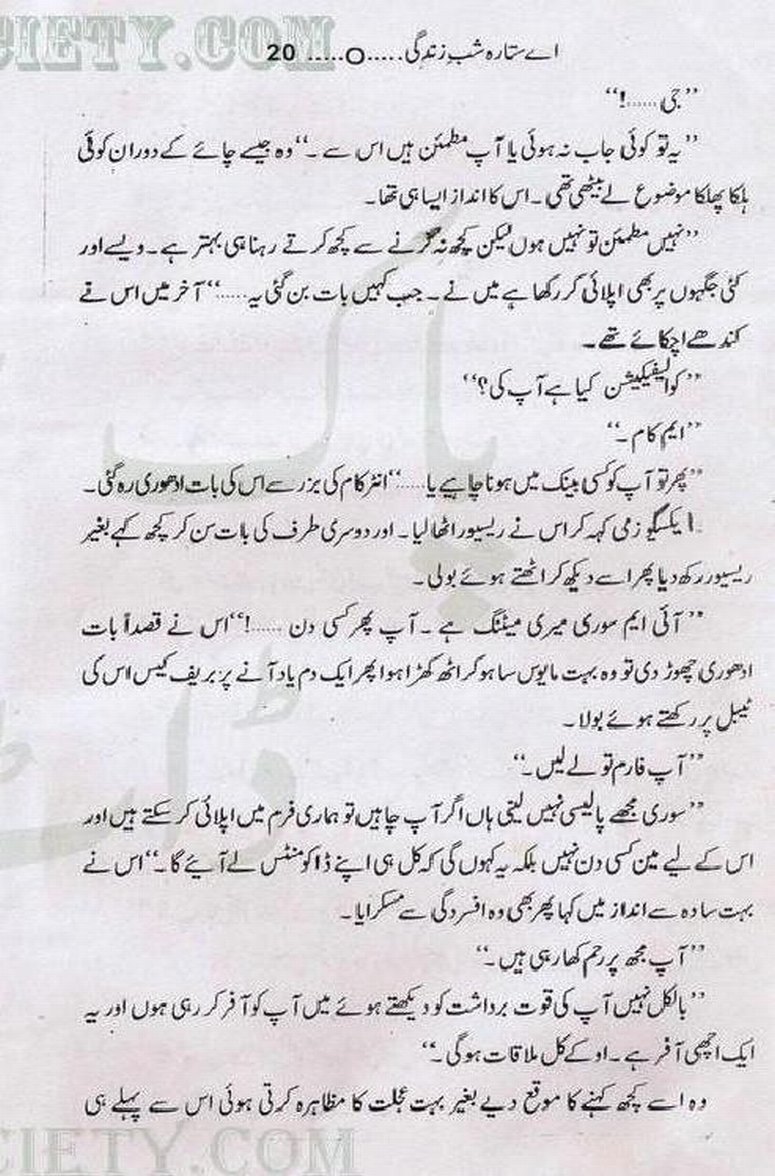 CIETY.COM
اے ستارہ شب زندگی ..... O ..... 20
”جی ......!“
”یہ تو کوئی جاب نہ ہوئی یا آپ مطمئن ہیں اس سے ۔“وہ جیسے چائے کے دوران کوئی
ہلکا پھلکا موضوع لے بیٹھی تھی۔ اس کا انداز ایسا ہی تھا۔
”نہیں مطمئن تو نہیں ہوں لیکن کچھ نہ کرنے سے کچھ کرتے رہنا ہی بہتر ہے۔ ویسے اور
کئی جگہوں پر بھی اپلائی کر رکھا ہے میں نے ۔ جب کہیں بات بن گئی یہ......“ آخر میں اس نے
کندھے اچکائے تھے ۔
”کوالیفیکیشن کیا ہے آپ کی؟“
”ایم کام ۔“
”پھر تو آپ کو کسی بینک میں ہونا چاہیے یا.....“انٹر کام کی بزر سے اس کی بات ادھوری رہ گئی۔
ایکسکیو زمی کہہ کر اس نے ریسیور اٹھا لیا۔ اور دوسری طرف کی بات سن کر کچھ کہے بغیر
ریسیور رکھ دیا پھر اسے دیکھ کر اٹھتے ہوئے بولی۔
”آئی ایم سوری میری میٹنگ ہے ۔ آپ پھر کسی دن ......!“اس نے قصداً بات
ادھوری چھوڑ دی تو وہ بہت مایوس سا ہو کر اٹھ کھڑا ہوا پھر ایک دم یاد آنے پر بریف کیس اس کی
ٹیبل پر رکھتے ہوئے بولا۔
”آپ فارم تو لے لیں۔“
”سوری مجھے پالیسی نہیں لینی ہاں اگر آپ چاہیں تو ہماری فرم میں اپلائی کر سکتے ہیں اور
اس کے لیے مین کسی دن نہیں بلکہ یہ کہوں گی کہ کل ہی اپنے ڈاکومنٹس لے آئیے گا۔“اس نے
بہت سادہ سے انداز میں کہا پھر بھی وہ افسردگی سے مسکرایا۔
”آپ مجھ پر رحم کھا رہی ہیں۔“
”بالکل نہیں آپ کی قوت برداشت کو دیکھتے ہوئے میں آپ کو آفر کر رہی ہوں اور یہ
ایک اچھی آفر ہے۔ اوکے کل ملاقات ہوگی ۔“
وہ اسے کچھ کہنے کا موقع دیے بغیر بہت عجلت کا مظاہرہ کرتی ہوئی اس سے پہلے ہی
CIETY.COM